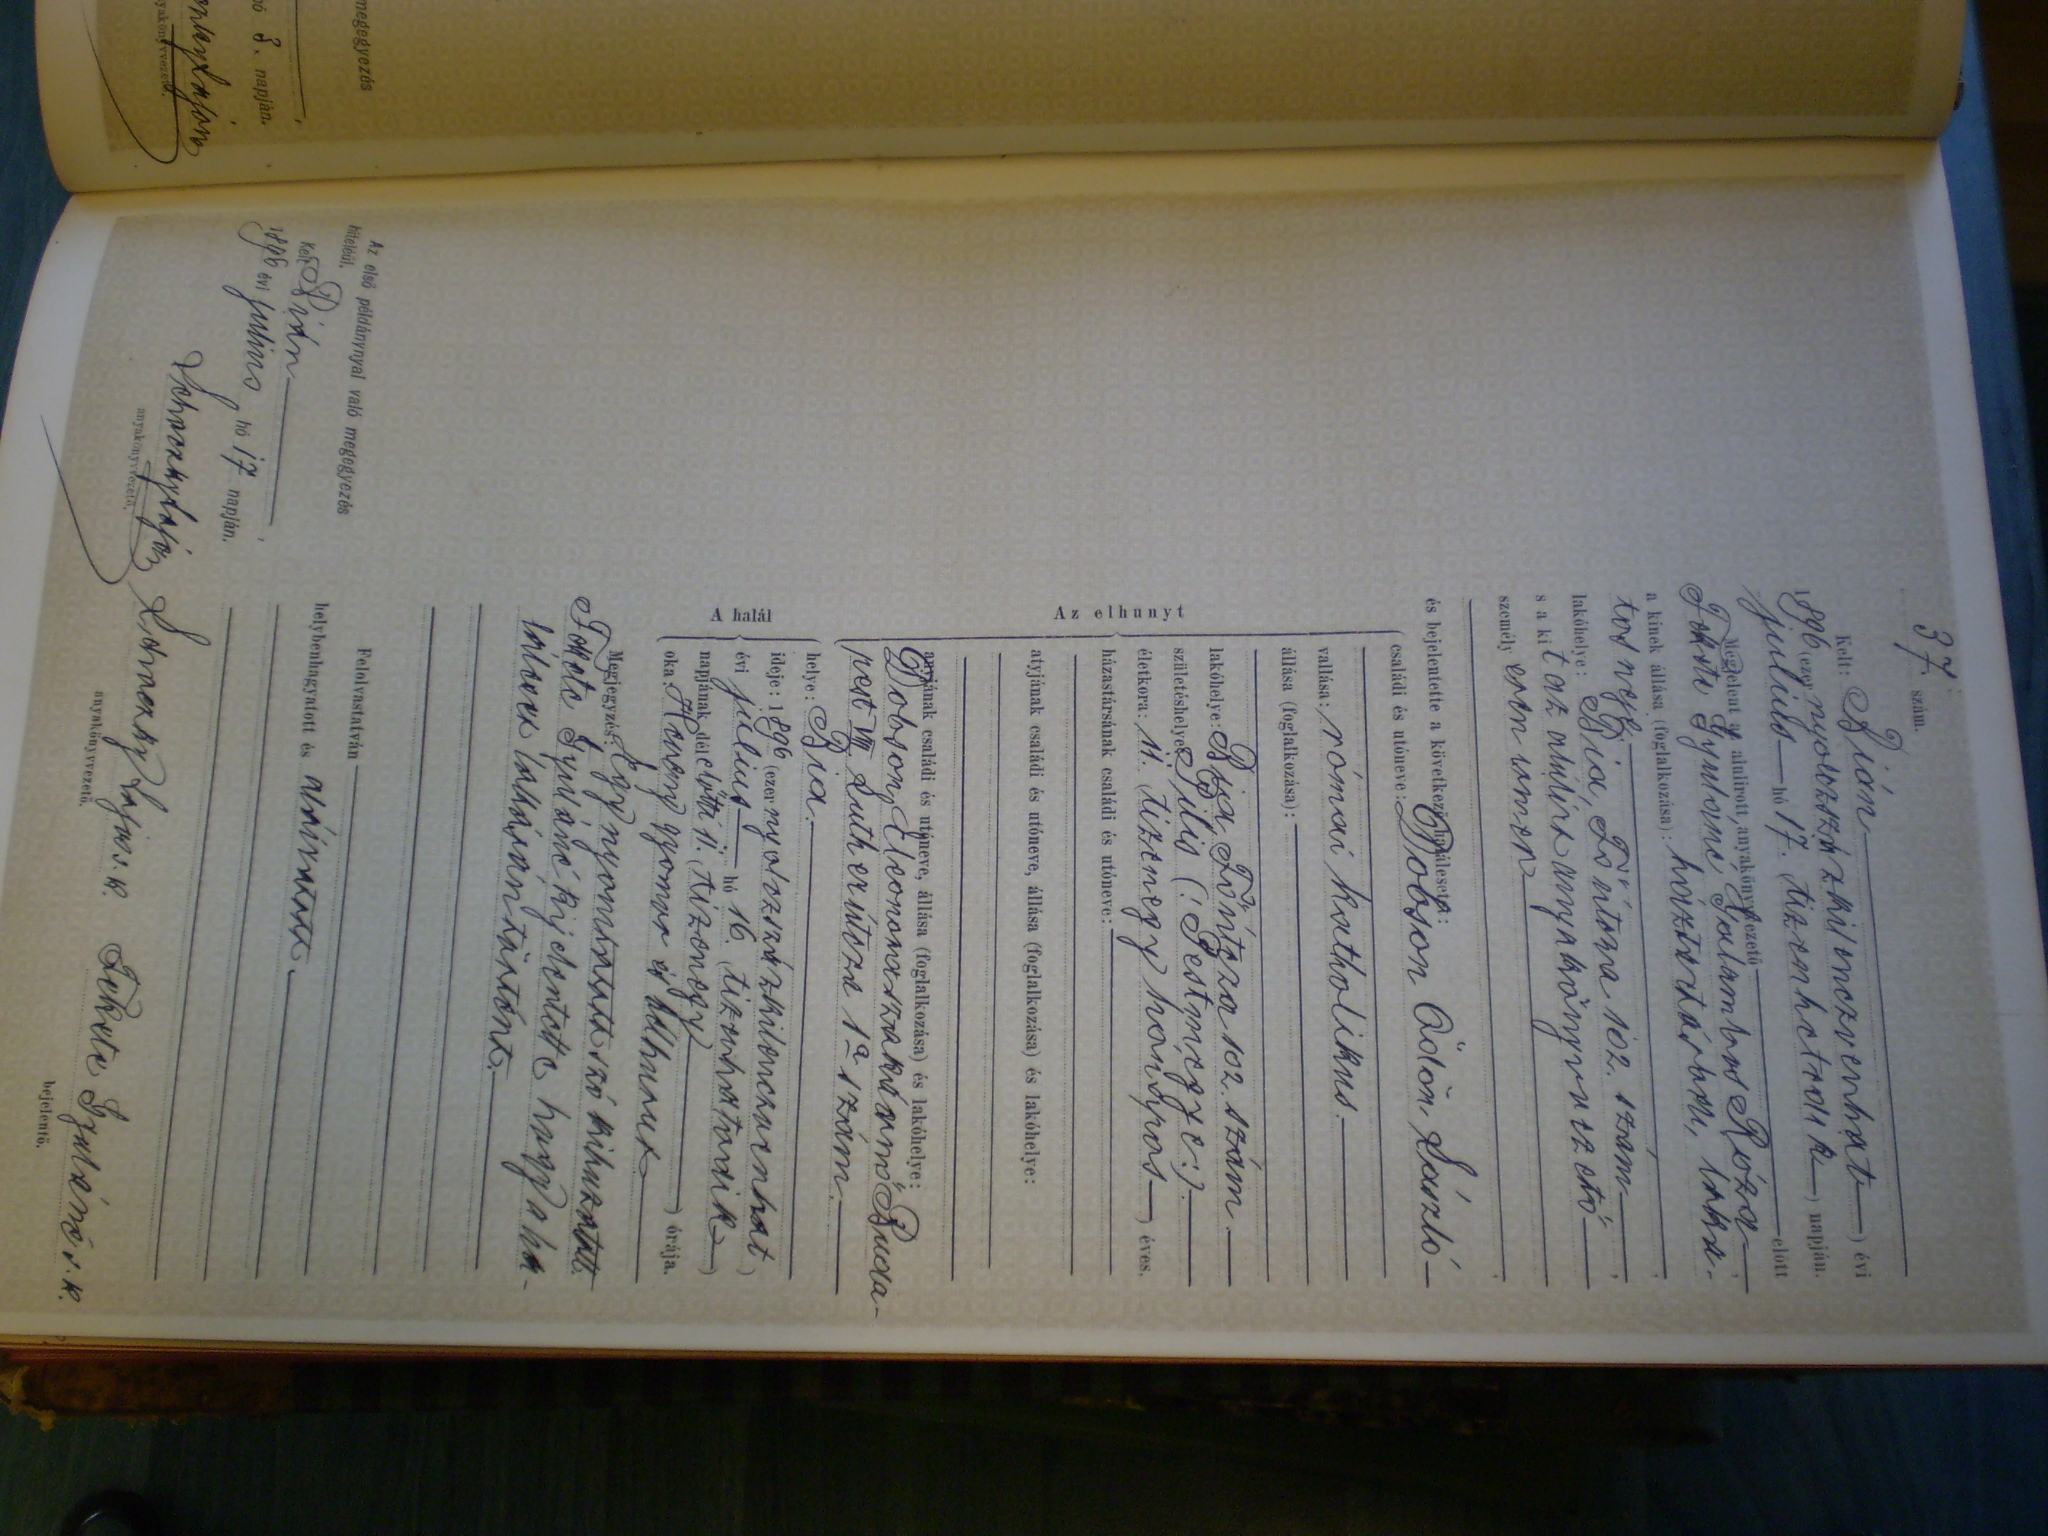 megegyezés
hó 8. napján.
anyakönyvvezető.
37. szám.
Kelt: Bián
1896 (ezer nyolczszázkilenczvenhat) évi
julius hó 17. (tizenhetedik) napján.
Megjelent az alulirott anyakönyvvezető előtt
Fekete Gyuláné, Galambos Róza
a kinek állása (foglalkozása): háztartásbeli, laka-
tos neje
lakóhelye: Bia, Fő utcza 102. szám
s a kit az alulirt anyakönyvvezető
személyesen ismer,
és bejelentette a következő halálesetet:
Az elhunyt
családi és utóneve: Dobson Ödön László
vallása: római katholikus.
állása (foglalkozása):
lakóhelye: Bia Fő utcza 102. szám.
születéshelye: (: Pestmegye :).
életkora: 11. (tizenegy hónapos) éves.
házastársának családi és utóneve:
atyjának családi és utóneve, állása (foglalkozása) és lakóhelye:
anyjának családi és utóneve, állása (foglalkozása) és lakóhelye:
Dobson Eleonora szakácsnő Buda-
pest VIII. Luther utcza 1a szám.
A halál
helye: Bia.
ideje: 1896 (ezernyolczszázkilenczvenhat)
évi julius hó 16. (tizenhatodik)
napjának délelőtti 11. (tizenegy) órája.
oka: Heveny gyomor és bélhurut
Megjegyzés: Egy nyomtatott szó kihuzatott.
Fekete Gyuláné kijelentette hogy a ha-
láleset lakásán történt.
Felolvastatván
helybenhagyatott és aláíratott.
Az első példánynyal való megegyezés
hiteléül.
Kelt Bián
1896 évi julius hó 17 napján.
Lajos
anyakönyvvezető.
Lajos s. k.
anyakönyvvezető.
Fekete Gyuláné s. k.
bejelentő.